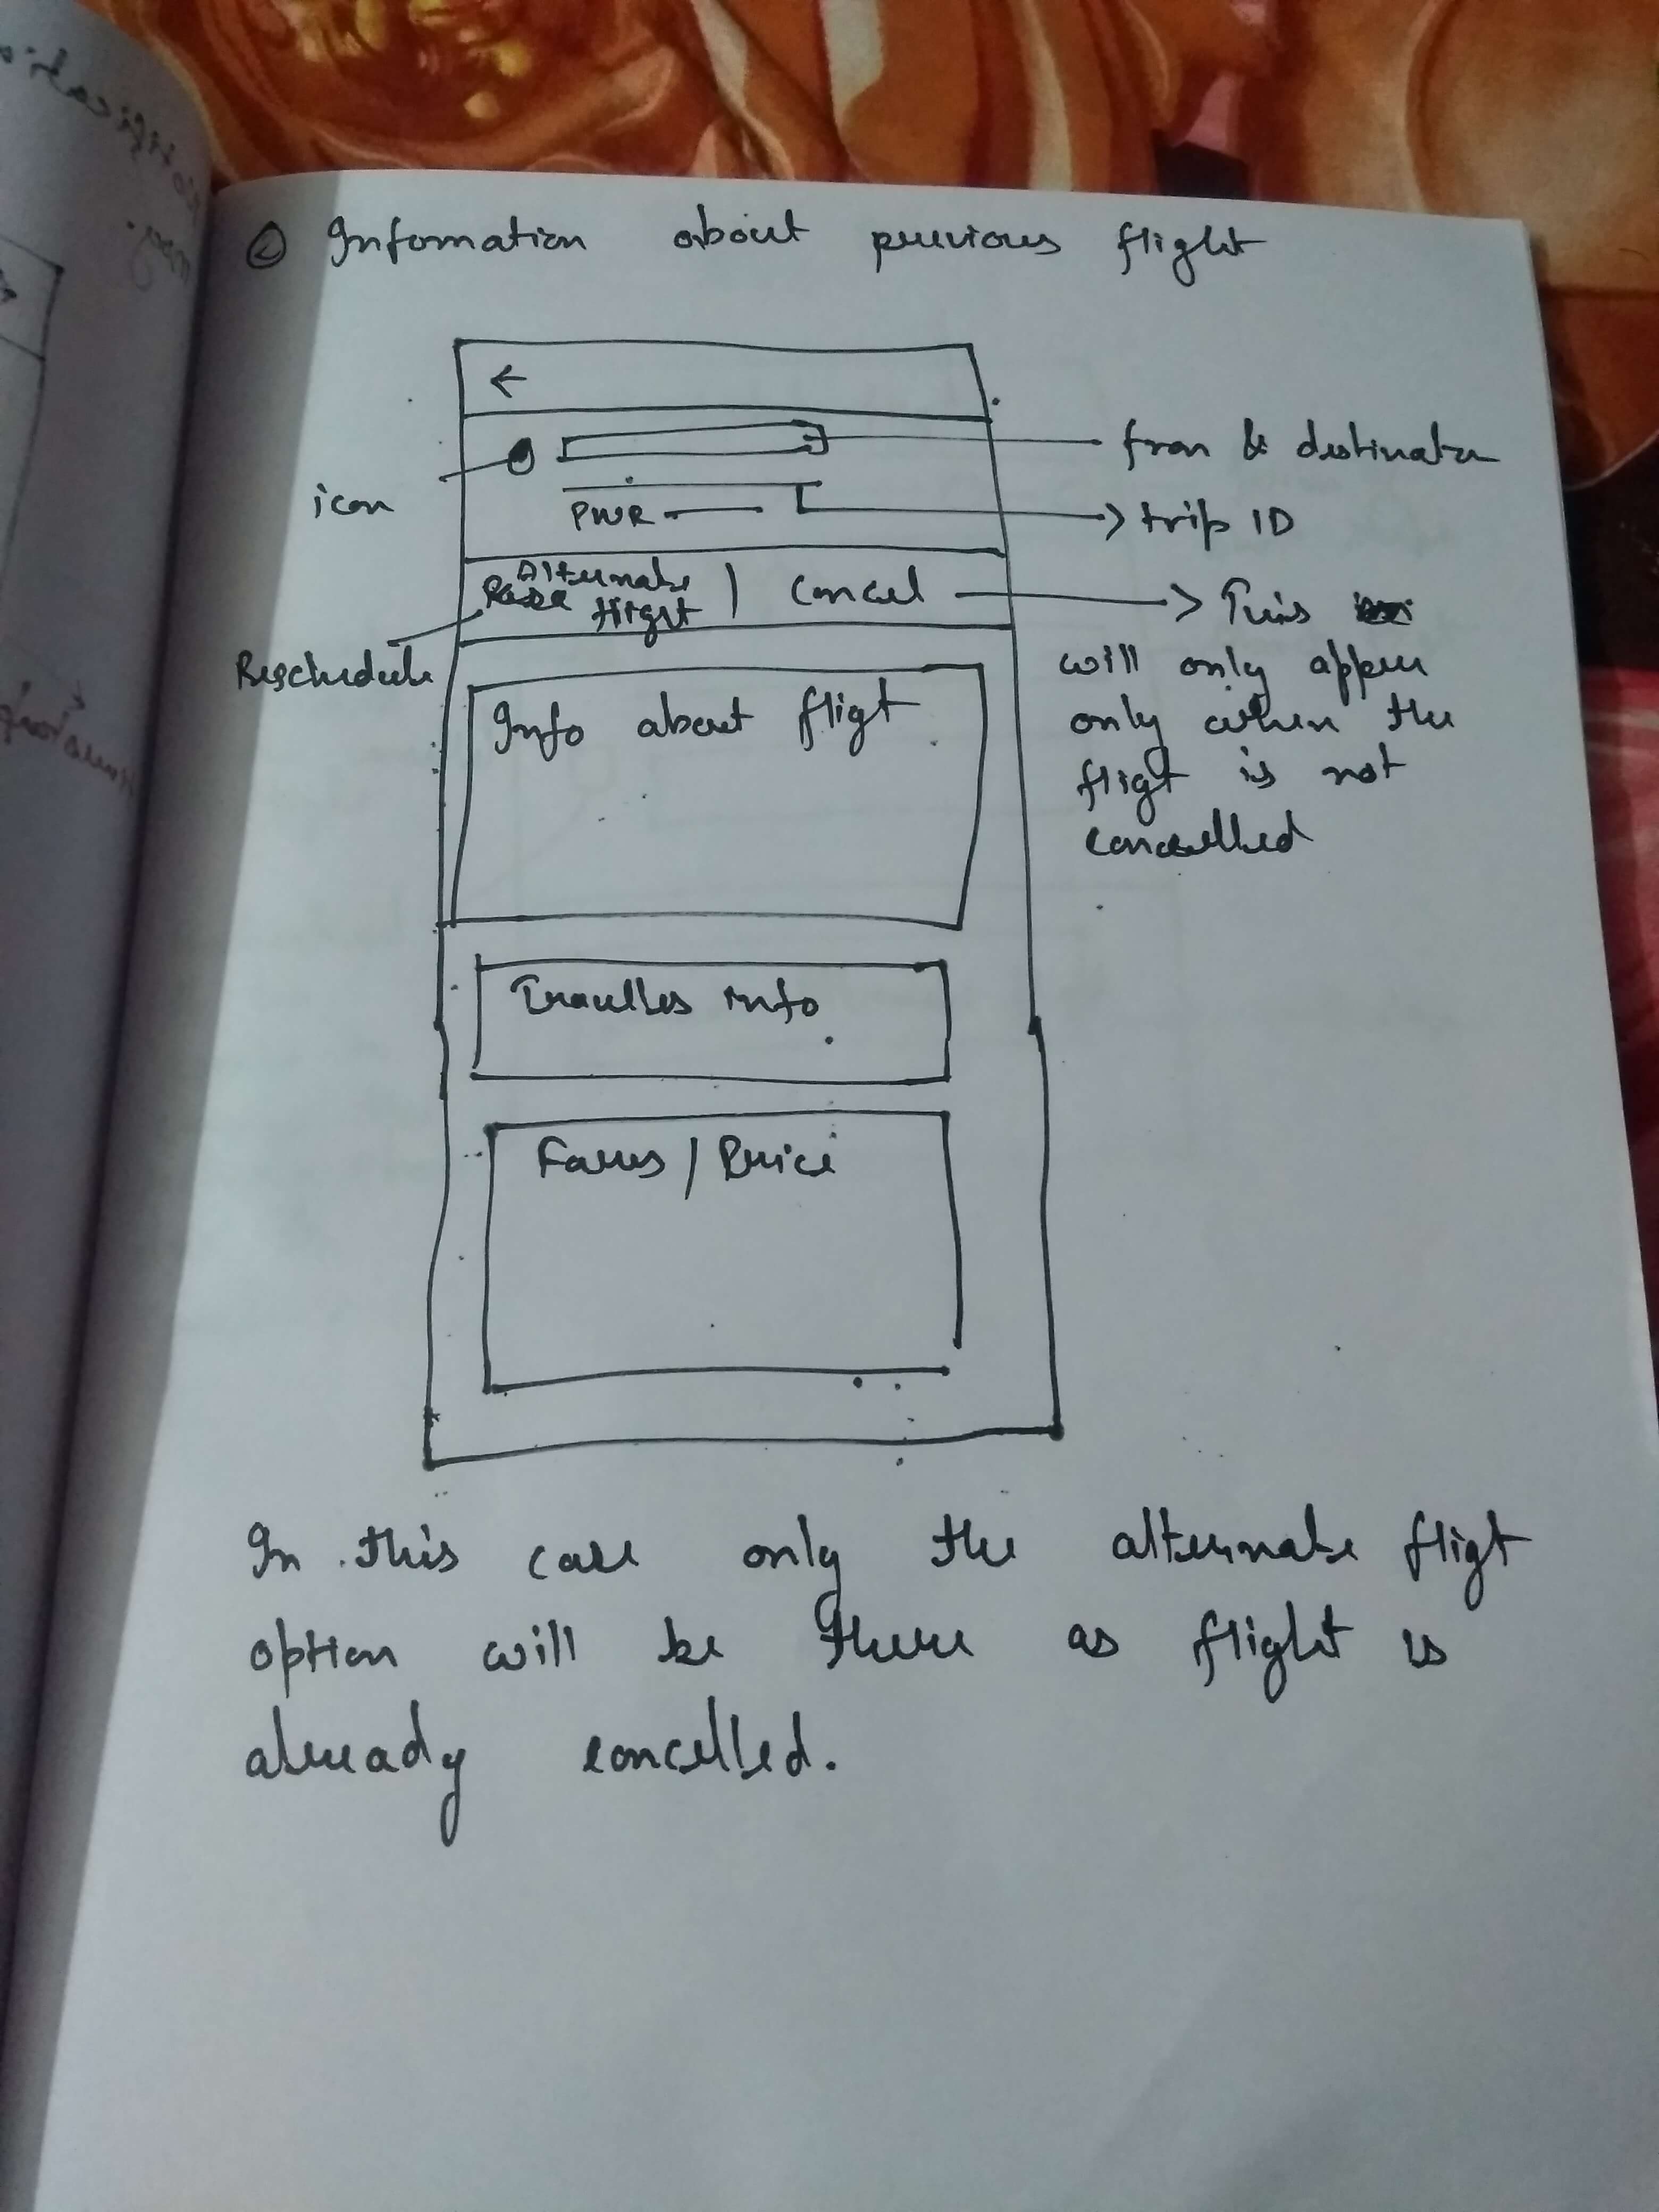 ② Infomation about previous flight
←
from & destination
icon
PNR
→ trip ID
Alternate
flight | Cancel → This
Reschedule
will only appear
only when the
fligt is not
cancelled
Info about fligt
Traveller info
Fares / Price
In this case only the alternate fligt
option will be there as flight is
already cancelled.